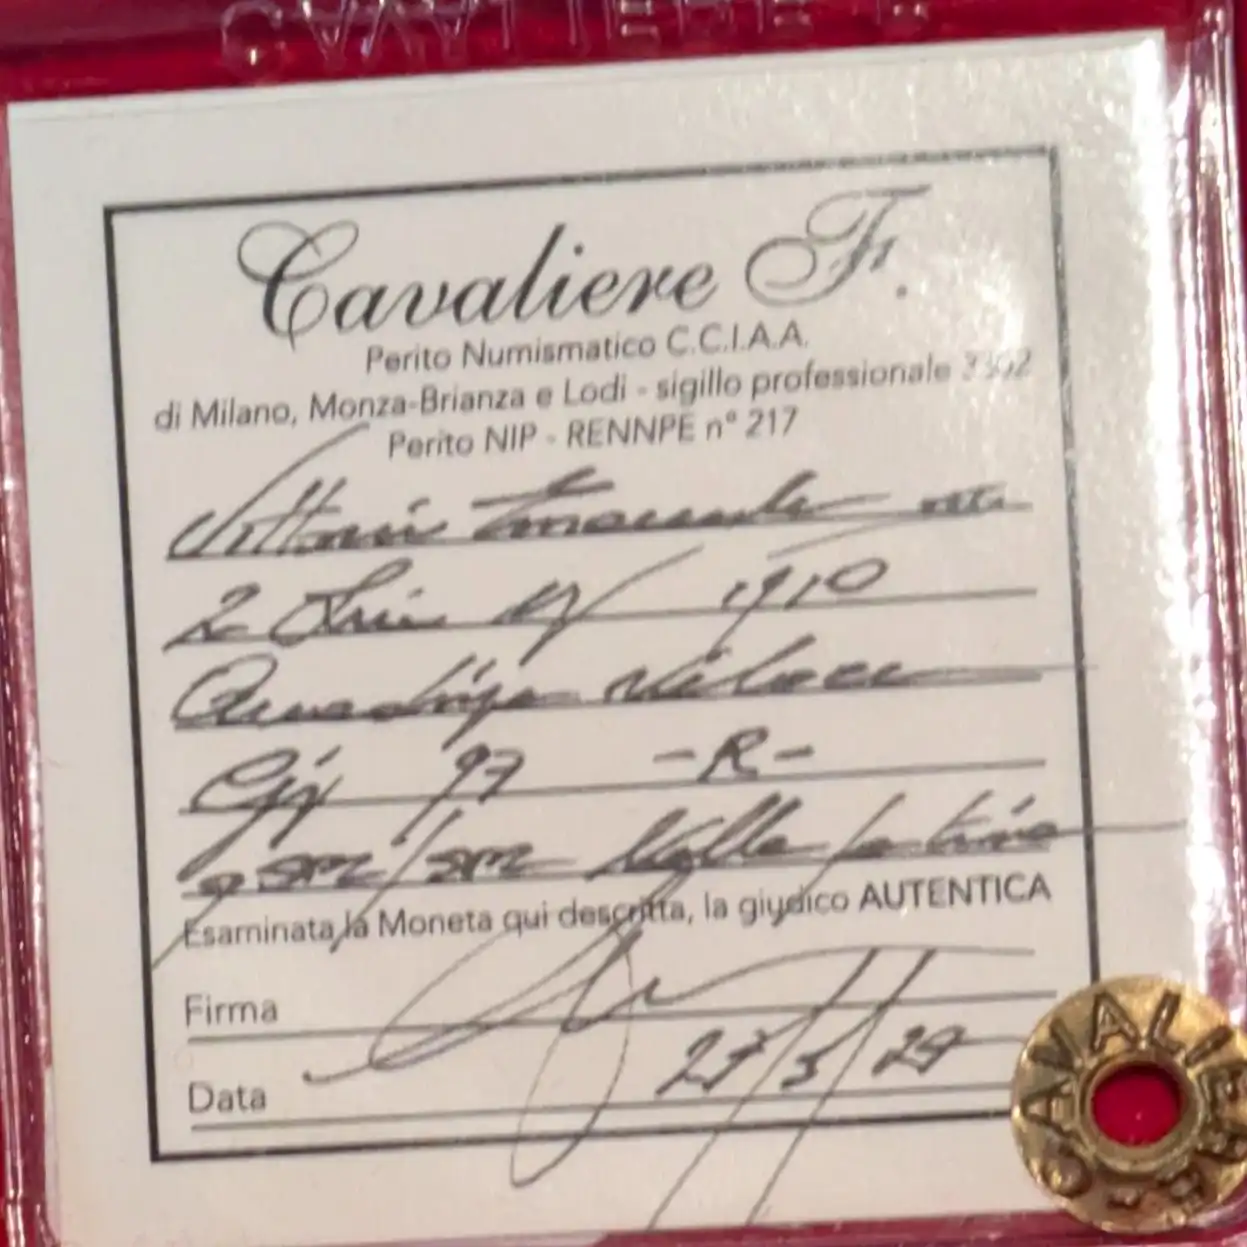 CAVALIERE F
Cavaliere F.
Perito Numismatico C.C.I.A.A.
di Milano, Monza-Brianza e Lodi - sigillo professionale
Perito NIP - RENNPE n° 217
Vittorio Emanuele
2 Lire 1910
Quadriga Veloce
Gig 97 -R-
Esaminata la Moneta qui descritta, la giudico AUTENTICA
Firma
Data 27/5/
CAVALIERE F.